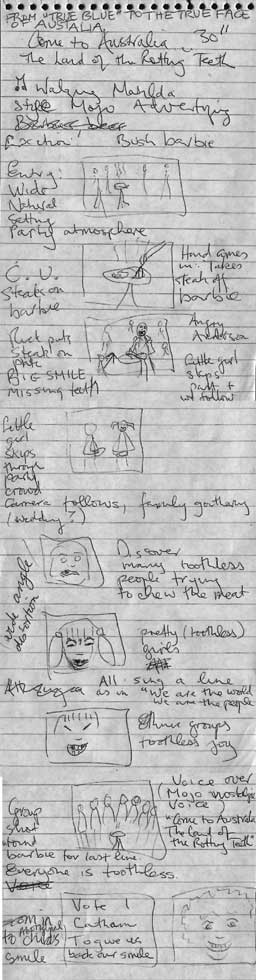 FROM "TRUE BLUE" TO THE TRUE FACE
OF AUSTALIA
Come to Australia 30"
The Land of the Rotting Teeth
Waltzing Matilda
Style Mojo Advertising
Execution: Bush barbie
Entry:
Wide
Natural
Setting
Party atmosphere
C.U.
Steaks on
barbie
Hand comes
in. Takes
steak off
barbie
puts
steak on
plate
BIG SMILE
missing teeth
Angry
Anderson
Little girl
skips
past +
we follow
Little
girl
skips
through
party
crowd
Camera follows, family gathering
(wedding?)
wide angle
distortion
Discover
many toothless
people trying
to chew the meat
pretty (toothless)
girls
All sing a line
as in "We are the world
we are the people
Ethnic groups
toothless joy
Voice over
(Mojo nostalgic
voice)
"Come to Australia
The Land of
the Rotting Teeth"
Group
shot
round
barbie for last line
Everyone is toothless.
zoom in
to childs
smile
Vote 1
Catham
To give us
back our smile